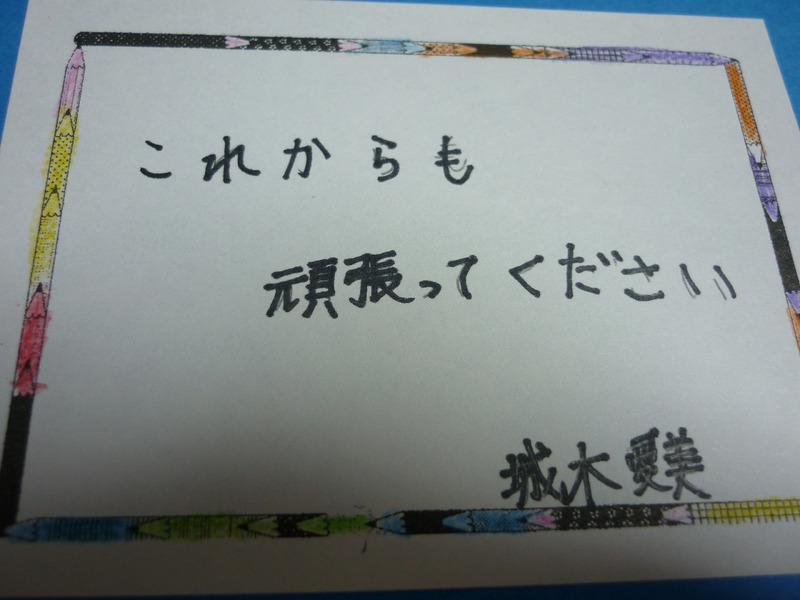 これからも
頑張ってください
城木愛美